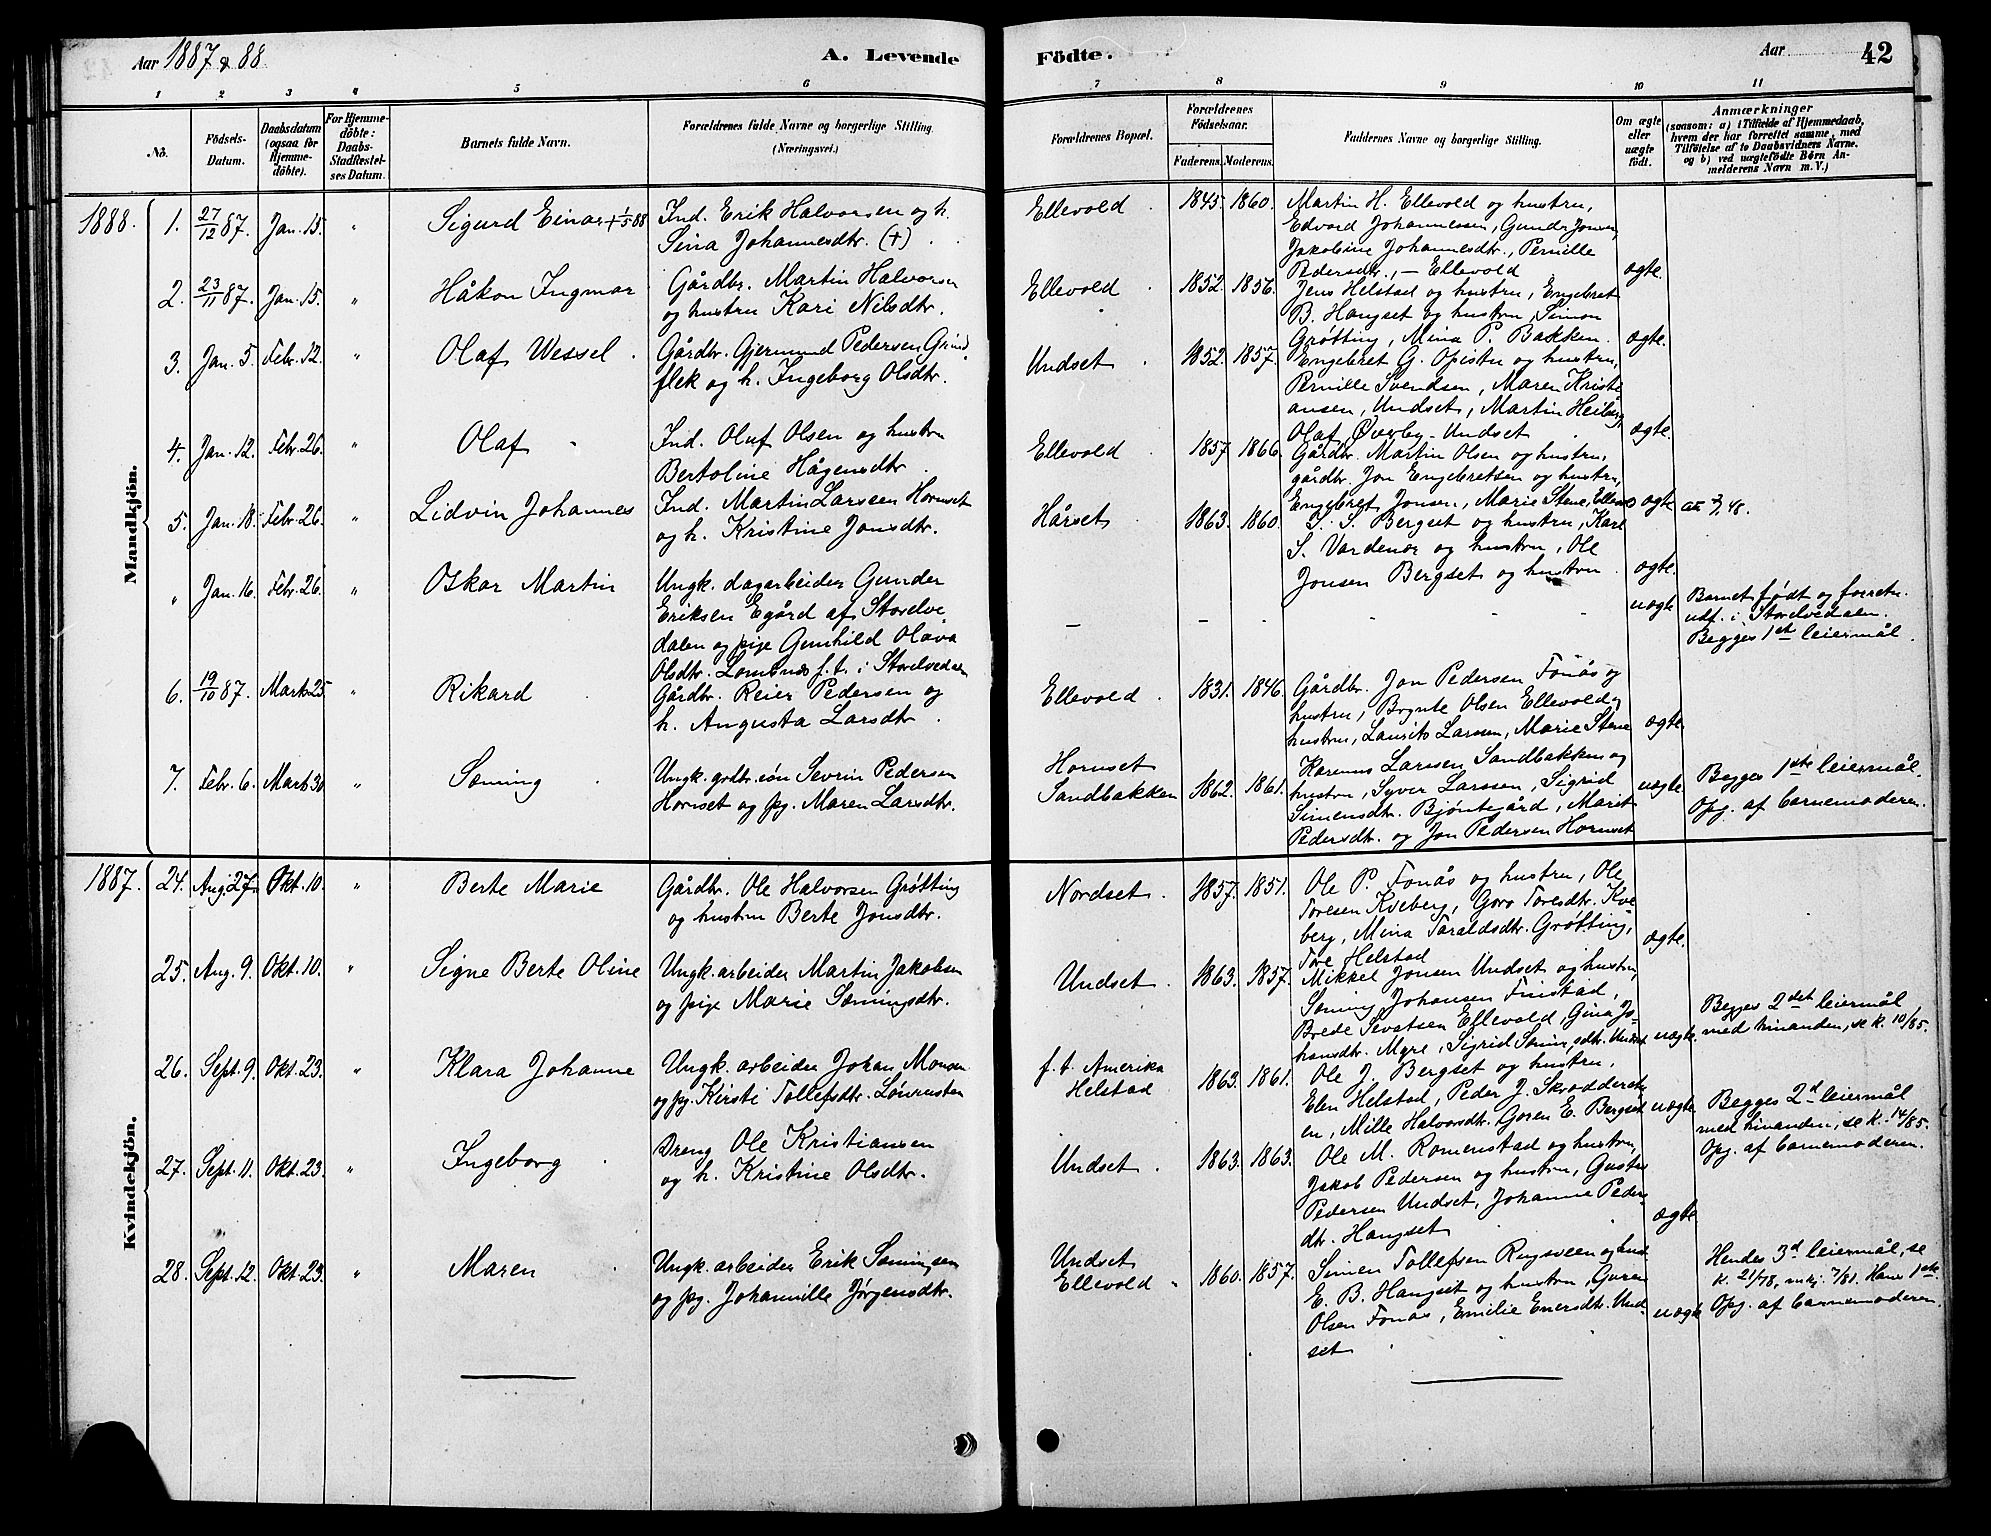 Aar 1887 & 88 A. Levende
Födte. Aar 42
1 2 3 4 5 6
7 8 9 10 11
No. Födsels-Datum. Daabsdatum (ogsaa for Hjemmedöbte). For Hjemmedöbte: Daabs-Stadfæstelses Datum. Barnets fulde Navn. Forældrenes fulde Navne og borgerlige Stilling. (Næringsvei.)
Forældrenes Bopæl. Forældrenes Födselsaar. Faderens. Moderens. Faddernes Navne og borgerlige Stilling. Om ægte eller uægte födt. Anmærkninger (saasom: a) i Tilfælde af Hjemmedaab, hvem der har forrettet samme, med Tilföielse af to Daabsvidners Navne. og b) ved uægtefödte Börn Anmelderens Navn m. V.)
Mandkjön.
1888. 1. 27/12 87. Jan. 15. " Sigurd Einar + 1/5 88 Ind. Erik Halvorsen og h.
Sina Johannesdtr. (+)
Ellevold 1845. 1860. Martin H. Ellevold og hustru,
Edvard Johannessen, Gunder Jonsen,
Jakobine Johannesdtr., Pernille
Pedersdtr., - Ellevold ægte.
2. 23/11 87. Jan. 15. " Håkon Ingmar Gårdbr. Martin Halvorsen
og hustru Kari Nilsdtr.
Ellevold 1852. 1856. Jens Helstad og hustru, Engebret
B. Hangset og hustru, Simon
Grøtting, Mina P. Bakken. ægte.
3. Jan. 5. Febr. 12. " Olaf Wessel Gårdbr. Gjermund Pedersen Grind
flek og h. Ingeborg Olsdtr.
Undset 1852. 1857. Engebret G. Opistu og hustru,
Pernille Svendsen, Maren Kristi
ansen, Undset, Martin Heiberg,
Olaf Øverby - Undset ægte.
4. Jan. 12. Febr. 26. " Olaf Ind. Oluf Olsen og hustru
Bertoline Hågensdtr.
Ellevold 1857 1866. Gårdbr. Martin Olsen og hustru,
gårdbr. Jon Engebretsen og hustru,
Engebret Jonsen, Marie Stene, ægte
5. Jan. 18. Febr. 26. " Lidvin Johannes Ind. Martin Larsen Hornset
og h. Kristine Jonsdtr.
Hårset 1863. 1860. S. S. Bergset og hustru, Karl
S. Vardenær og hustru, Ole
Jonsen Bergset og hustru. ægte.
" Jan. 16. Febr. 26. " Oskar Martin Ungk. dagarbeider Gunder
Eriksen Egård af Storelve
dalen og pige Gunhild Olava
Olsdtr. Lomsnæs f. t. i Storelvedalen
- - - uægte Barnet født og forretn.
udf. i Storelvedalen.
Begges 1st leiermål.
6. 19/10 87. Marts 25. " Rikard Gårdbr. Reier Pedersen og
h. Augusta Larsdtr.
Ellevold 1831. 1846. Gårdbr. Jon Pedersen Fonås og
hustru, Brynte Olsen Ellevold og
hustru, Laurits Larsen, Marie Stene ægte.
7. Febr. 6. Marts 30 " Sæming Ungk. grdbr. søn Sevrin Pedersen
Hornset og pg. Maren Larsdtr.
Hornset
Sandbakken 1862. 1861. Karenus Larsen Sandbakken og
hustru, Syver Larssen, Sigrid
Simensdtr. Bjøntegård, Marit
Pedersdtr. og Jon Pedersen Hornset uægte Begges 1ste leiermål.
Opg. af barnemoderen.
Kvindekjön.
1887. 24. Aug. 27 Okt. 10. " Berte Marie Gårdbr. Ole Halvorsen Grøtting
og hustru Berte Jonsdtr.
Nordset 1857. 1851. Ole P. Fonås og hustru, Ole
Toresen Kveberg, Goro Toresdtr. Kve
berg, Mina Taraldsdtr. Grøtting,
Tore Helstad ægte.
25. Aug. 9. Okt. 10. " Signe Berte Oline Ungk. arbeider Martin Jakobsen
og pige Marie Sæmingsdtr.
Undset 1863. 1857. Mikkel Jonsen Undset og hustru,
Sæming Johansen Finstad,
Brede Sivatsen Ellevold, Gina Jo-
hansdtr. Myre, Sigrid Sæmingsdtr. Undset uægte. Begges 2det leiermål
med hinanden, se k. 10/85.
26. Sept. 9. Okt. 23. " Klara Johanne Ungk. arbeider Johan Monsen
og pg. Kirsti Tollefsdtr. Løvensten
f. t. Amerika
Helstad 1863. 1861. Ole J. Bergset og hustru,
Elen Helstad, Peder J. Skrædderstu
en, Mille Halvorsdtr. Goren E. Bergset uægte Begges 2d leiermål
med hinanden, se k. 14/85.
Opg. af barnemoderen.
27. Sept. 11. Okt. 23. " Ingeborg Dreng Ole Kristiansen
og h. Kristine Olsdtr.
Undset 1863. 1863. Ole M. Romenstad og hustru,
Jakob Pedersen og hustru, Gustav
Pedersen Undset, Johanne Peders
dtr. Hangset ægte
28. Sept. 12. Okt. 23. " Maren Ungk. arbeider Erik Sæmingsen
og pg. Johannille Jørgensdtr.
Undset
Ellevold 1860. 1857. Simen Tollefsen Rugsveen og hust
E. B. Hangset og hustru, Goren
Olsen Fonås, Emilie Enersdtr. Und-
set uægte Hendes 3d leiermål, se
k. 21/78, mkj. 7/81. Hans 1ste.
Opg. af barnemoderen.